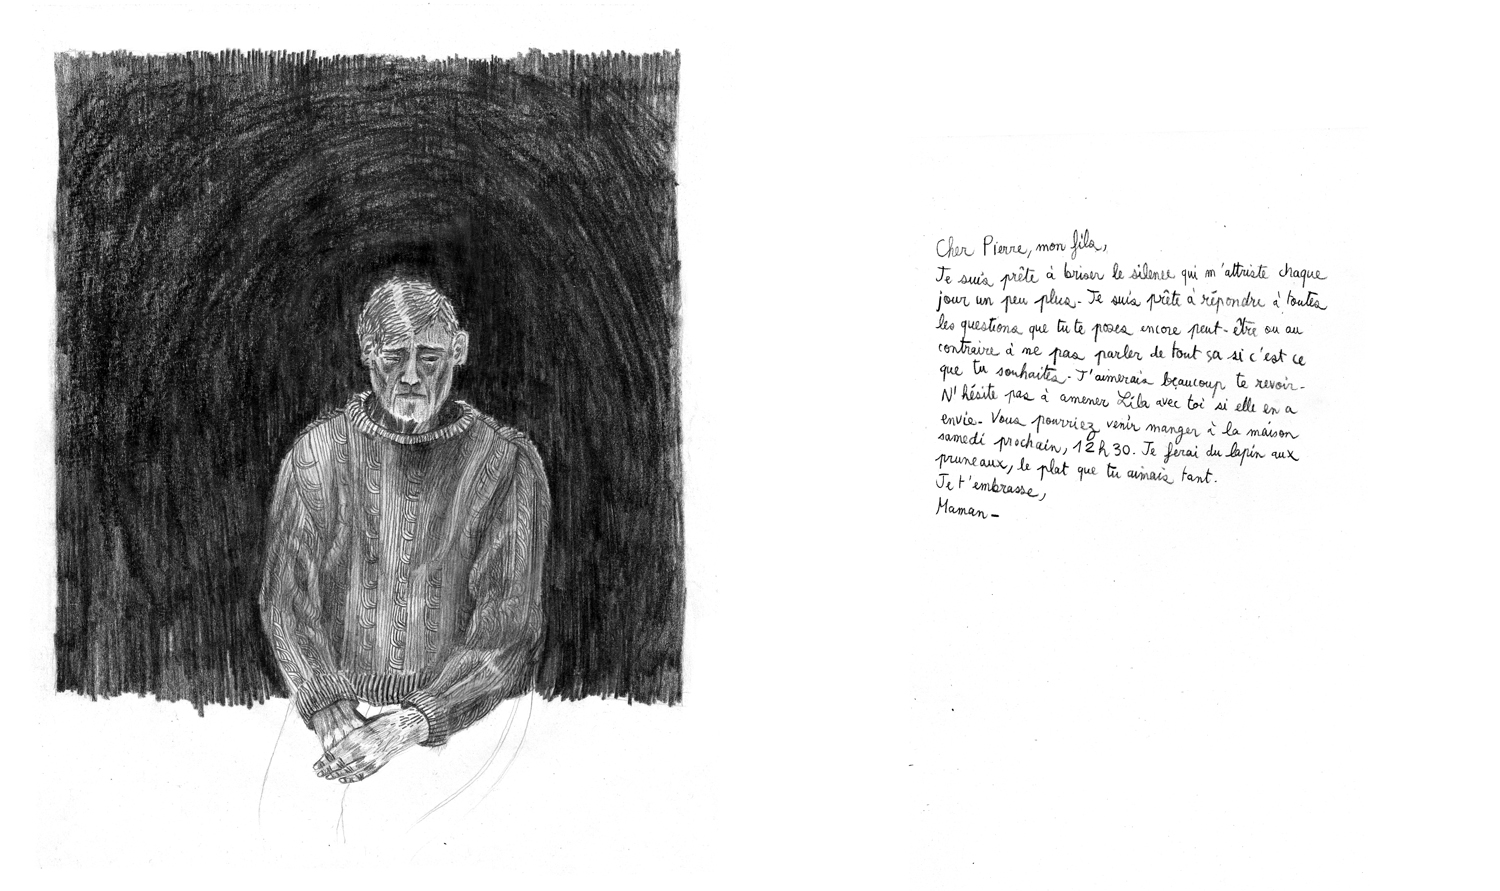 Cher Pierre, mon fils,
Je suis prête à briser le silence qui m'attriste chaque
jour un peu plus. Je suis prête à répondre à toutes
les questions que tu te poses encore peut-être ou au
contraire à ne pas parler de tout ça si c'est ce
que tu souhaites. J'aimerais beaucoup te revoir.
N'hésite pas à amener Lila avec toi si elle en a
envie. Vous pourriez venir manger à la maison
samedi prochain, 12h30. Je ferai du lapin aux
pruneaux, le plat que tu aimais tant.
Je t'embrasse,
Maman -